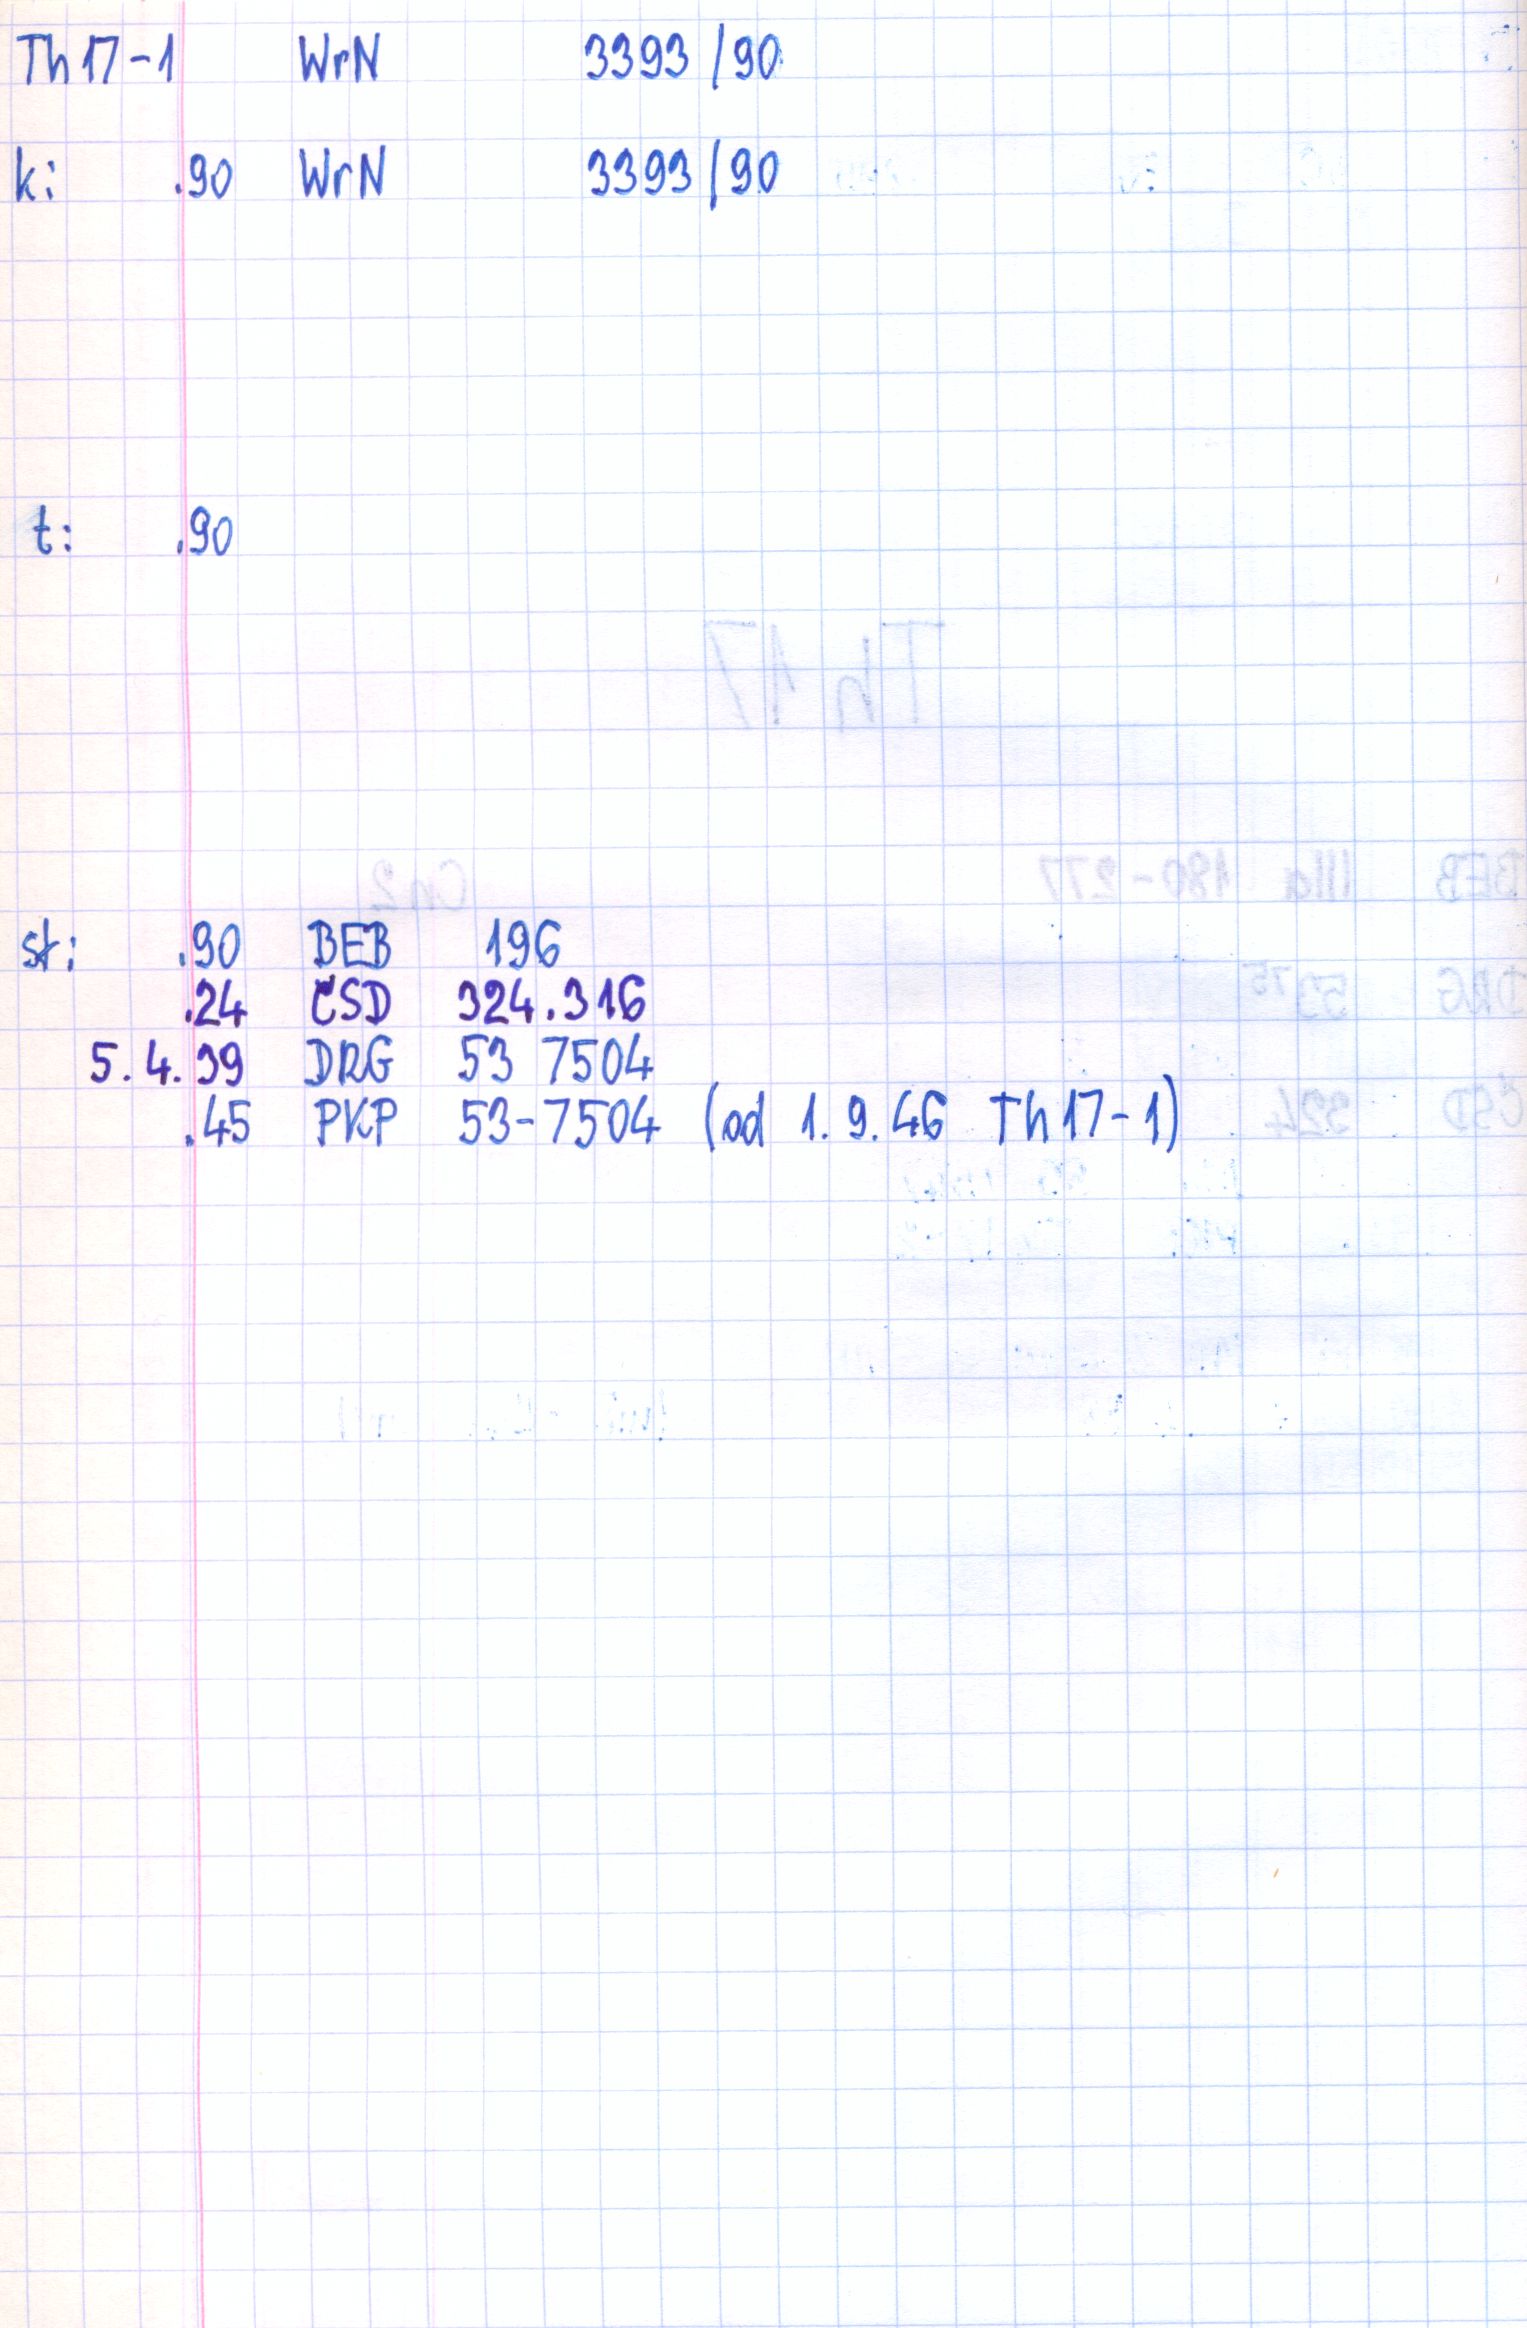 Th17-1 WrN 3393/90
k: .90 WrN 3393/90
t: .90
st: .90 BEB 196
.24 ČSD 324.316
5.4.39 DRG 53 7504
.45 PKP 53-7504 (od 1.9.46 Th17-1)